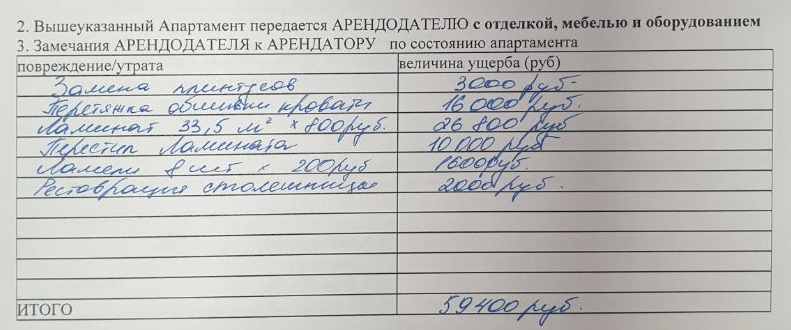 2. Вышеуказанный Апартамент передается АРЕНДОДАТЕЛЮ с отделкой, мебелью и оборудованием
3. Замечания АРЕНДОДАТЕЛЯ к АРЕНДАТОРУ по состоянию апартамента
повреждение/утрата величина ущерба (руб)
Замена плинтусов 3000 руб-
Перетяжка обшивки кровати 16 000 руб.
Ламинат 33,5 м² × 800 руб. 26 800 руб
Перестил Ламината 10 000 руб
Ламели 8 шт × 200 руб 1600 руб.
Реставрация столешницы 2000 руб.
ИТОГО 59400 руб.